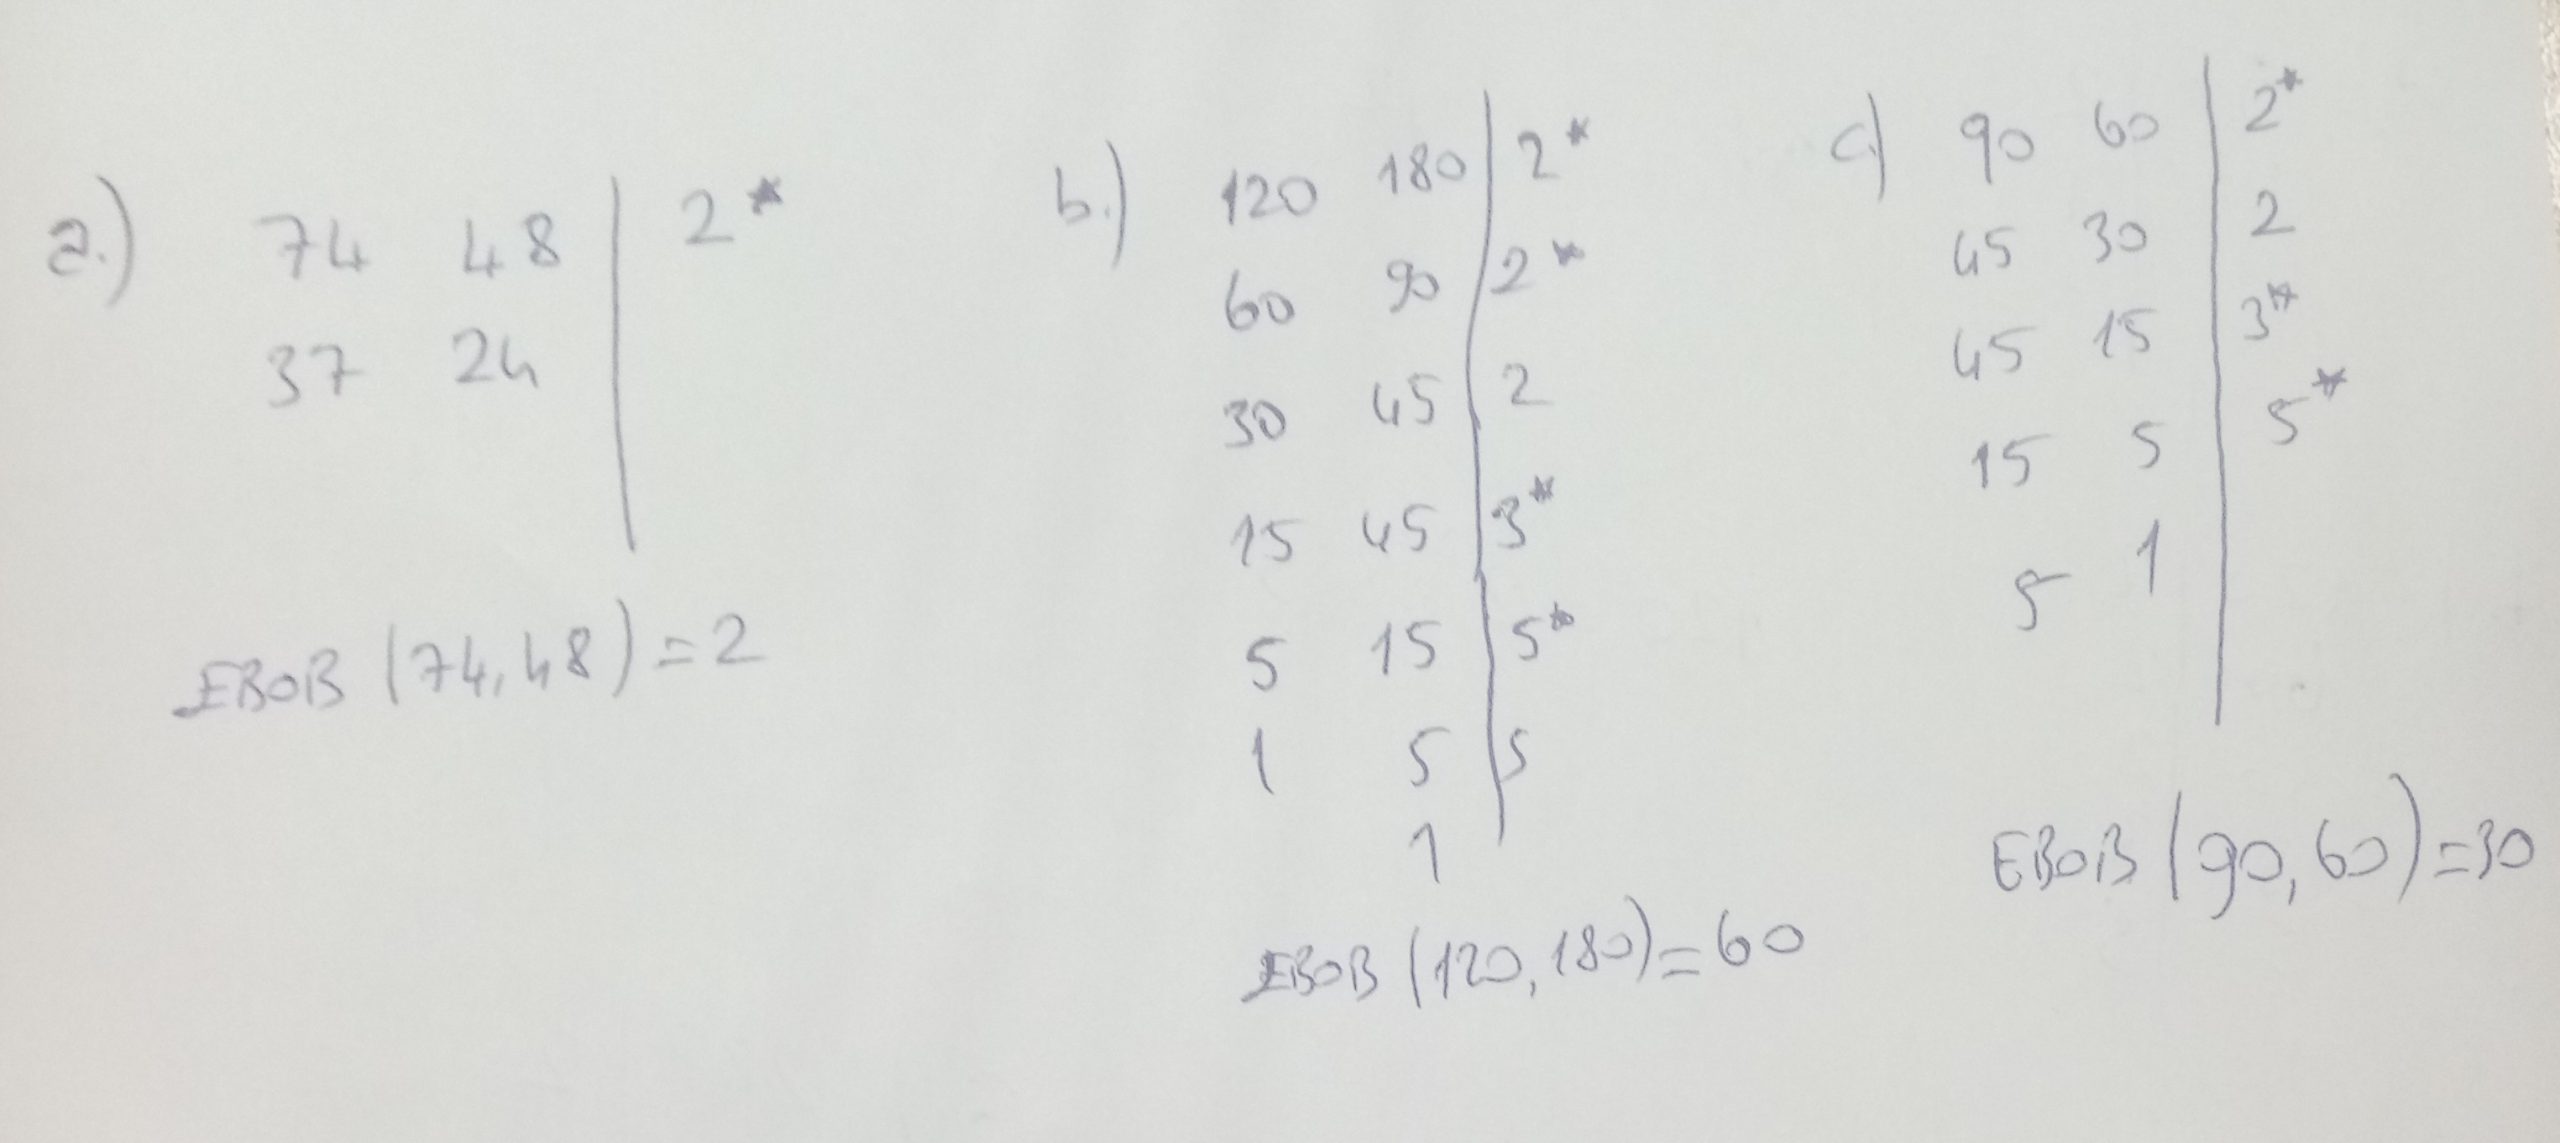 a.) 74 48 | 2*
37 24
EBOB (74,48) = 2
b.) 120 180 | 2*
60 90 | 2*
30 45 | 2
15 45 | 3*
5 15 | 5*
1 5 | 5
1
EBOB (120,180) = 60
c.) 90 60 | 2*
45 30 | 2
45 15 | 3*
15 5 | 5*
5 1
EBOB (90,60) = 30